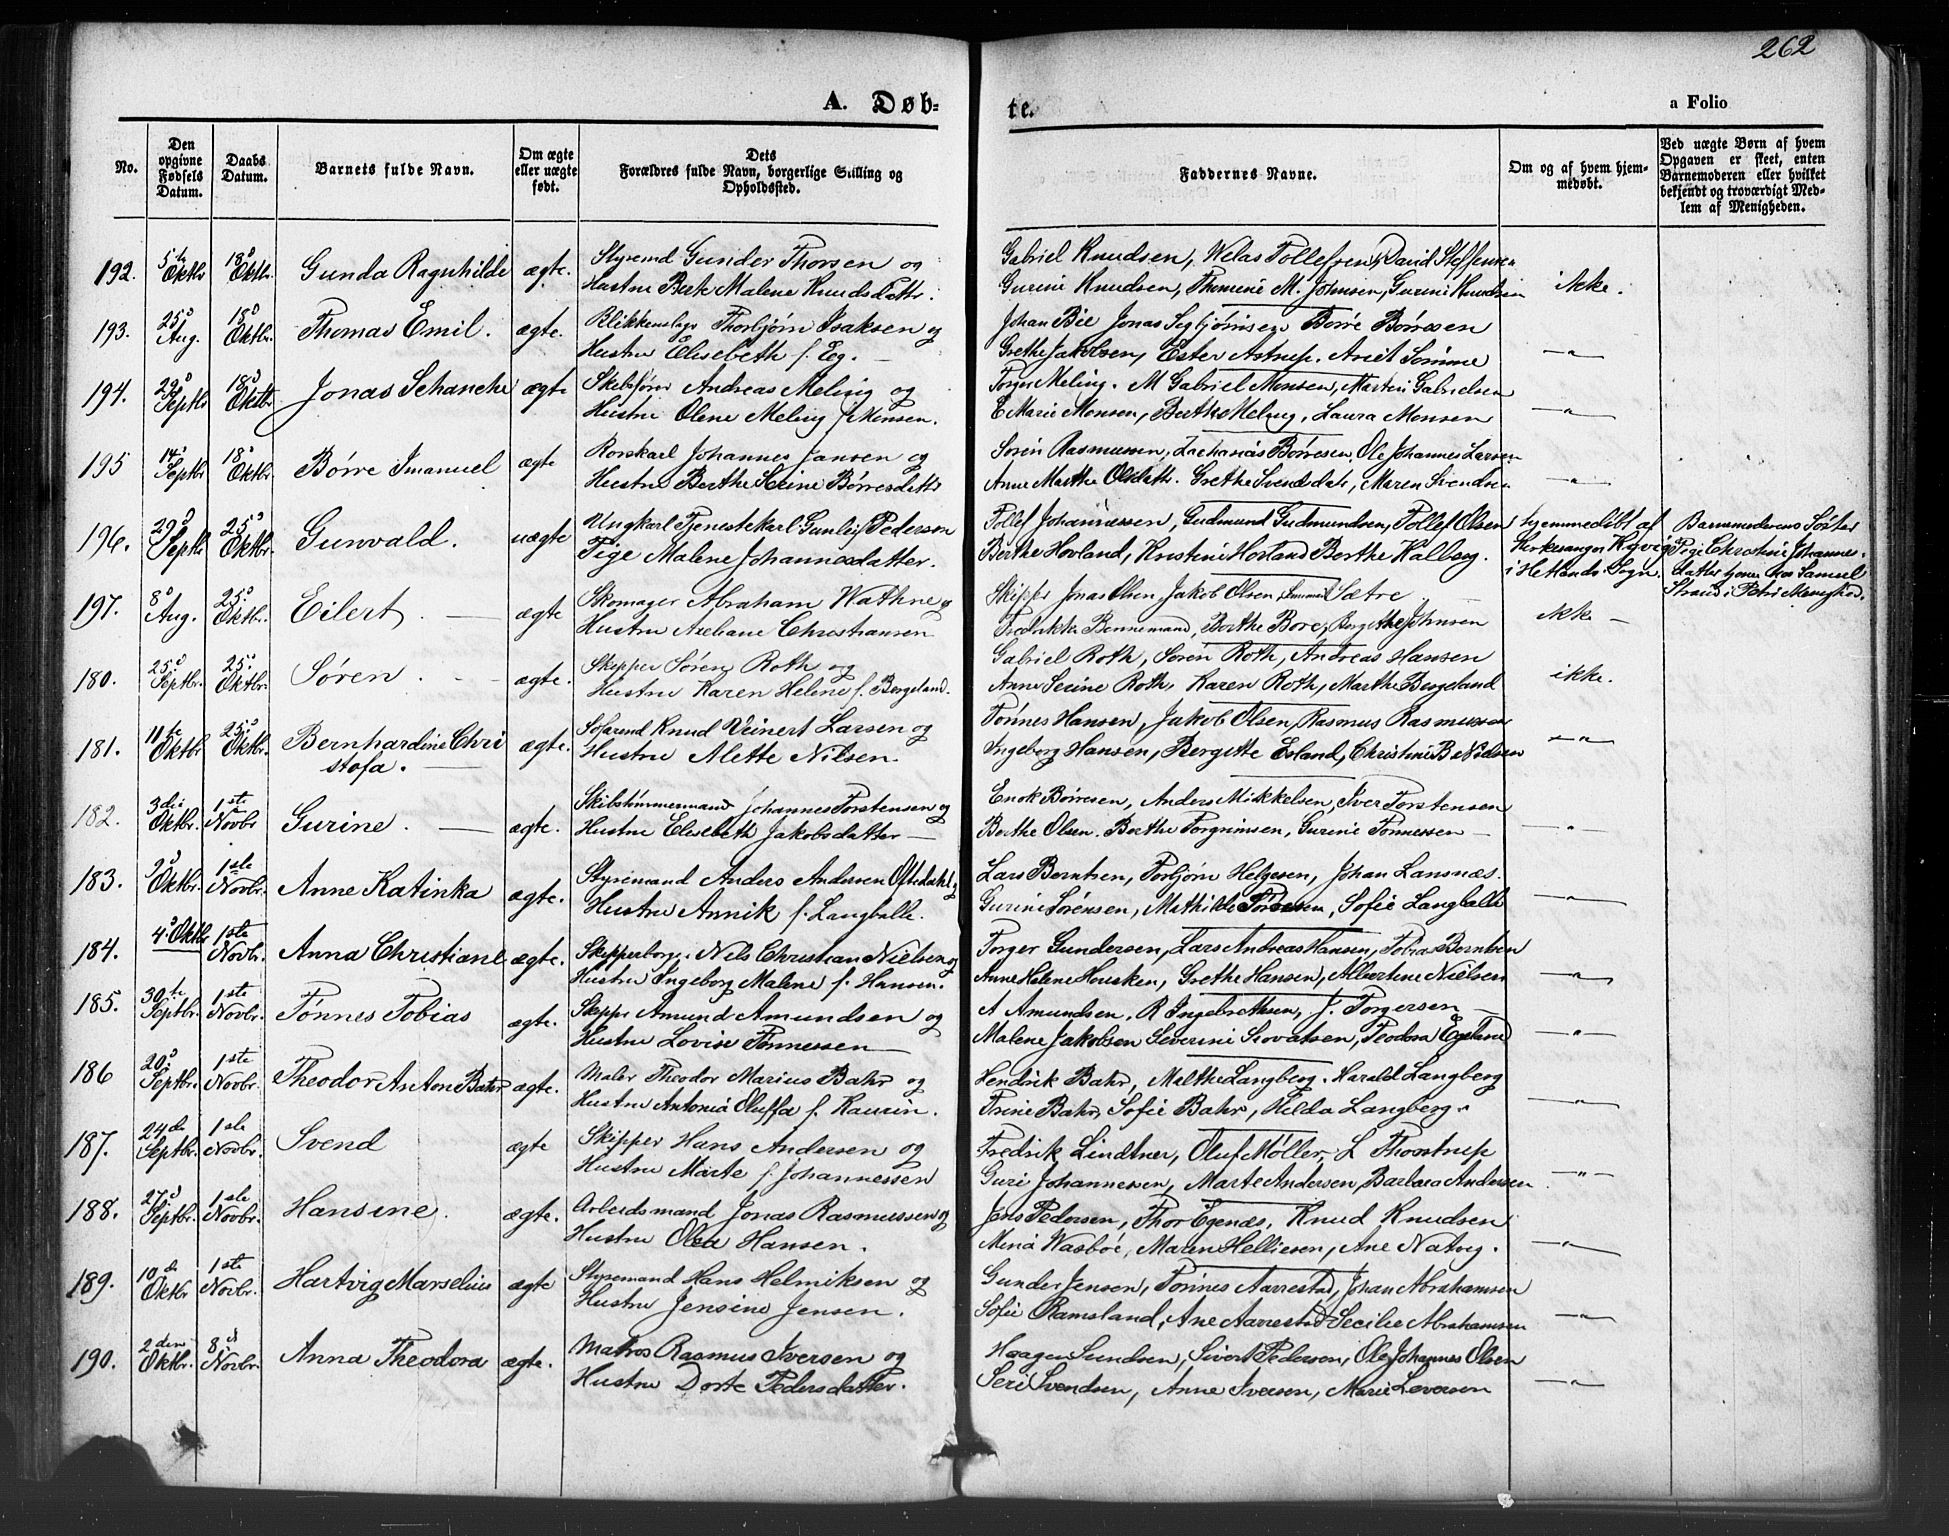 262
A. Døb-
te.
a Folio
No.
Den opgivne Fødsels Datum.
Daabs Datum.
Barnets fulde Navn.
Om ægte eller uægte født.
Dets Forældres fulde Navn, borgerlige Stilling og Opholdssted.
Faddernes Navne.
Om og af hvem hjemmedøbt.
Ved uægte Børn af hvem Opgaven er skeet, enten Barnemoderen eller hvilket bekjendt og troværdigt Medlem af Menigheden.
192. 5te Oktbr 18d Oktbr. Gunda Ragnhilde ægte. Styrmd Gunder Thorsen og
Hustru Berte Malene Knudsdattr.
Gabriel Knudsen, Welas Tollefsen, David Steffensen
Gurine Knudsen, Thomine M. Johnsen, Gurine Knudsen ikke.
193. 25d Aug. 18d Oktbr. Thomas Emil. ægte. Blikkenslagr Thorbjørn Isaksen og
Hustru Elisebeth f. Eeg. —
Johan Bie Jonas Sigbjørnsen Børre Børresen
Grethe Jakobsen, Ester Astrup. Anit Sømme — " —
194. 29d Septbr 18d Oktbr. Jonas Schanche ægte Skibsfører Andreas Meling og
Hustru Olene Meling f. Monsen.
Torger Meling. M Gabriel Monsen, Martin Gabrielsen
E Marie Monsen, Berthe Meling, Laura Monsen — " —
195 14d Septbr 18d Oktbr. Børre Imanuel ægte Rorskarl Johannes Jansen og
Hustru Berthe Serine Børresdattr
Søren Rasmussen, Zacharias Børresen, Ole Johannes Larsen
Anne Marthe Olsdatt. Grethe Svendsdatr, Maren Svendsen — " —
196. 29d Septbr 25d Oktbr. Gunvald. uægte Ungkarl Tjenestekarl Gunleif Pederson
Pige Malene Johannesdatter.
Tollef Johannessen, Gudmund Gudmundsen, Tollef Olsen hjemmedøbt af Barnemoderens Søster
Berthe Hovland, Kristine Hovland Berthe Kalberg. Kirkesanger Kjøvig Pige Christine Johannes-
i Hetlands Sogn. datter tjener hos Samuel
Strand i Petri Menighed.
197. 8d Aug. 25d Oktbr. Eilert. — ægte Skomager Abraham Wathne og
Hustru Axeliane Christiansen
Skipper Jonas Olsen, Jakob Olsen, Sætre
Fredrikke Bennemand, Berthe Bore, Bergithe Johnsen ikke —
180. 25d Septbr. 25d Oktbr. Søren. ægte. Skipper Søren Roth og
Hustru Karen Helene f. Bergeland.
Gabriel Roth, Søren Roth, Andreas Hansen
Anne Serine Roth, Karen Roth, Marthe Bergeland ikke.
181. 11te Oktbr 25d Oktbr. Bernhardine Chri ægte. Søfarend Knud Reinert Larsen og
stofa. — Hustru Alette Nilsen.
Tønnes Hansen, Jakob Olsen, Rasmus Rasmussen
Ingeborg Hansen, Bergitte Esland, Christine B Nielsen — " —
182. 3die Oktbr 1ste Novbr Gurine. — ægte. Skibstømmermand Johannes Torstensen og
Hustru Elisebeth Jakobsdatter —
Enok Børresen, Anders Mikkelsen, Iver Torstensen
Berthe Olsen. Berthe Torgrimsen, Gurine Tønnessen — — " —
183. 9d Oktbr. 1ste Novbr. Anne Katinka ægte. Styrmand Anders Andersen Oftedahl og
Hustru Annik f. Langballe.
Lars Berntsen, Torbjørn Helgesen, Johan Lansnæs.
Gurine Sørensen, Mathilde Pedersen, Sofie Langballe — " —
184. 4d Oktbr 1ste Novbr. Anna Christiane ægte. Skipperborgr. Nils Christian Nielsen og
Hustru Ingeborg Malene f. Hansen.
Torger Gundersen, Lars Andreas Hansen, Tobias Berntsen
Anne Helene Housken, Grethe Hansen, Albertine Nielsen — " —
185. 30te Septbr. 1ste Novbr. Tønnes Tobias ægte. Skippr Amund Amundsen og
Hustru Lovise Tønnessen —
A Amundsen. R Ingebrethsen, J. Torgersen —
Malene Jakobsen Severine Sivatsen, Teodora Egeland — " —
186 20d Septbr. 1ste Novbr. Theodor Anton Bahr ægte. Maler Theodor Marius Bahr og
Hustru Antonia Oluffa f. Kaurin.
Hendrik Bahr, Malthe Langberg. Harald Langberg
Trine Bahr, Sofie Bahr, Hilda Langberg. — " —
187. 24de Septbr. 1ste Novbr. Svend ægte Skipper Hans Andersen og
Hustru Marte f. Johannessen
Fredrik Lindtner, Oluf Møller, L Thostrup
Guri Johannesen, Marte Andersen, Barbara Andersen. — " —
188. 27d Septbr. 1ste Novbr. Hansine. ægte. Arbeidsmand Jonas Rasmussen og
Hustru Olea Hansen.
Jens Pedersen, Thor Egenæs, Knud Knudsen
Mina Wasbøe, Maren Helliesen, Ane Natvig. — " —
189. 10d Oktbr 1ste Novbr. Hartvig Marselius ægte Styrmand Hans Helmiksen og
Hustru Jensine Jensen.
Gunder Jensen, Tønnes Aarrestad, Johan Abrahamsen
Sofie Ramsland, Ane Aarrestad Cecilie Abrahamsen — " —
190. 2den Oktbr. 8d Novbr. Anna Theodora ægte. Matros Rasmus Iversen og
Hustru Dorte Pedersdatter.
Haagen Sundsen, Sivert Pedersen, Ole Johannes Olsen
Seri Svendsen, Anne Iversen, Marie Leversen — " —